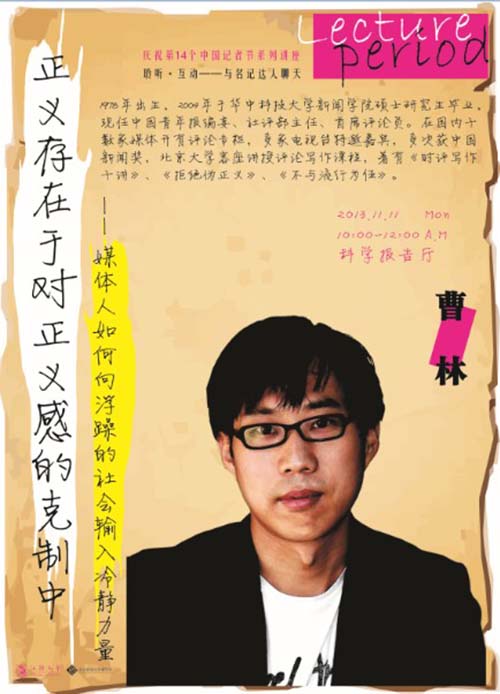 Lecture
period
庆祝第14个中国记者节系列讲座
聆听·互动——与名记达人聊天
1978年出生，2004年于华中科技大学新闻学院硕士研究生毕业，
现任中国青年报编委、社评部主任、首席评论员。在国内十
数家媒体开有评论专栏，多家电视台特邀嘉宾，多次获中国
新闻奖，北京大学客座讲授评论写作课程，著有《时评写作
十讲》、《拒绝伪正义》、《不与流行为伍》。
2013.11.11 Mon
10:00-12:00 A.M
科学报告厅
曹林
正义存在于对正义感的克制中
——媒体人如何向浮躁的社会输入冷静力量